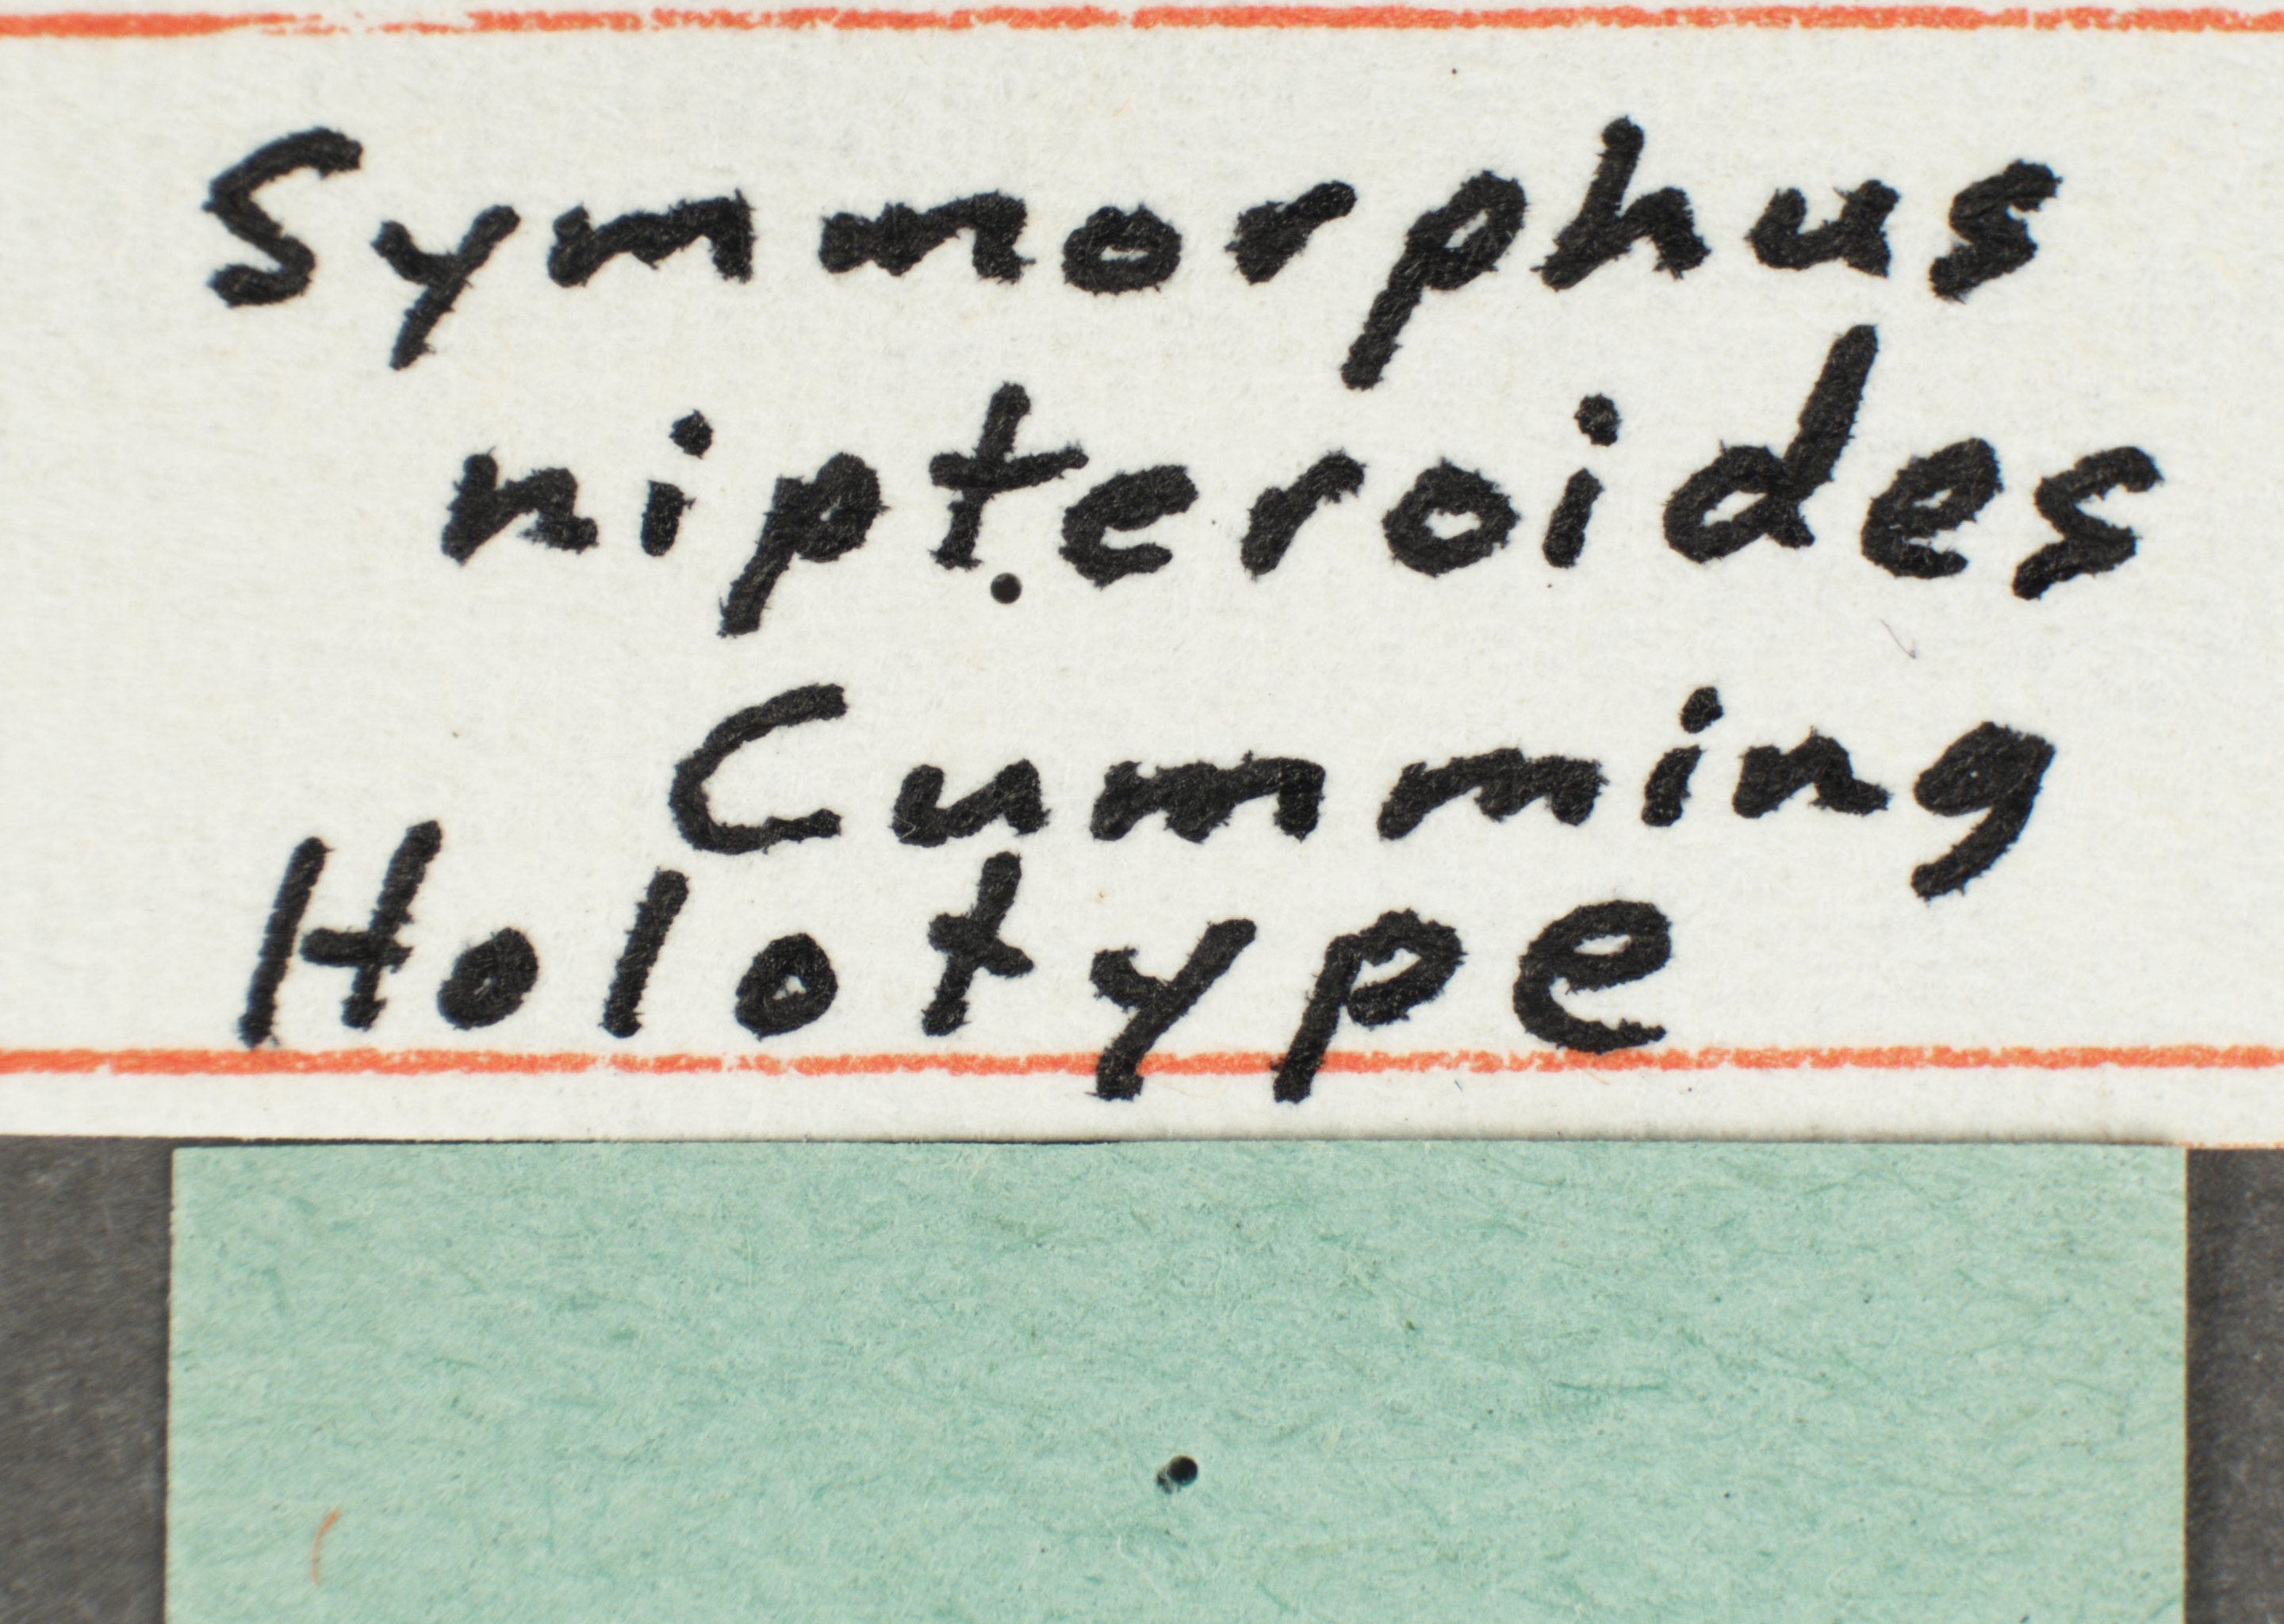 Symmorphus
nipteroides
Cumming
Holotype